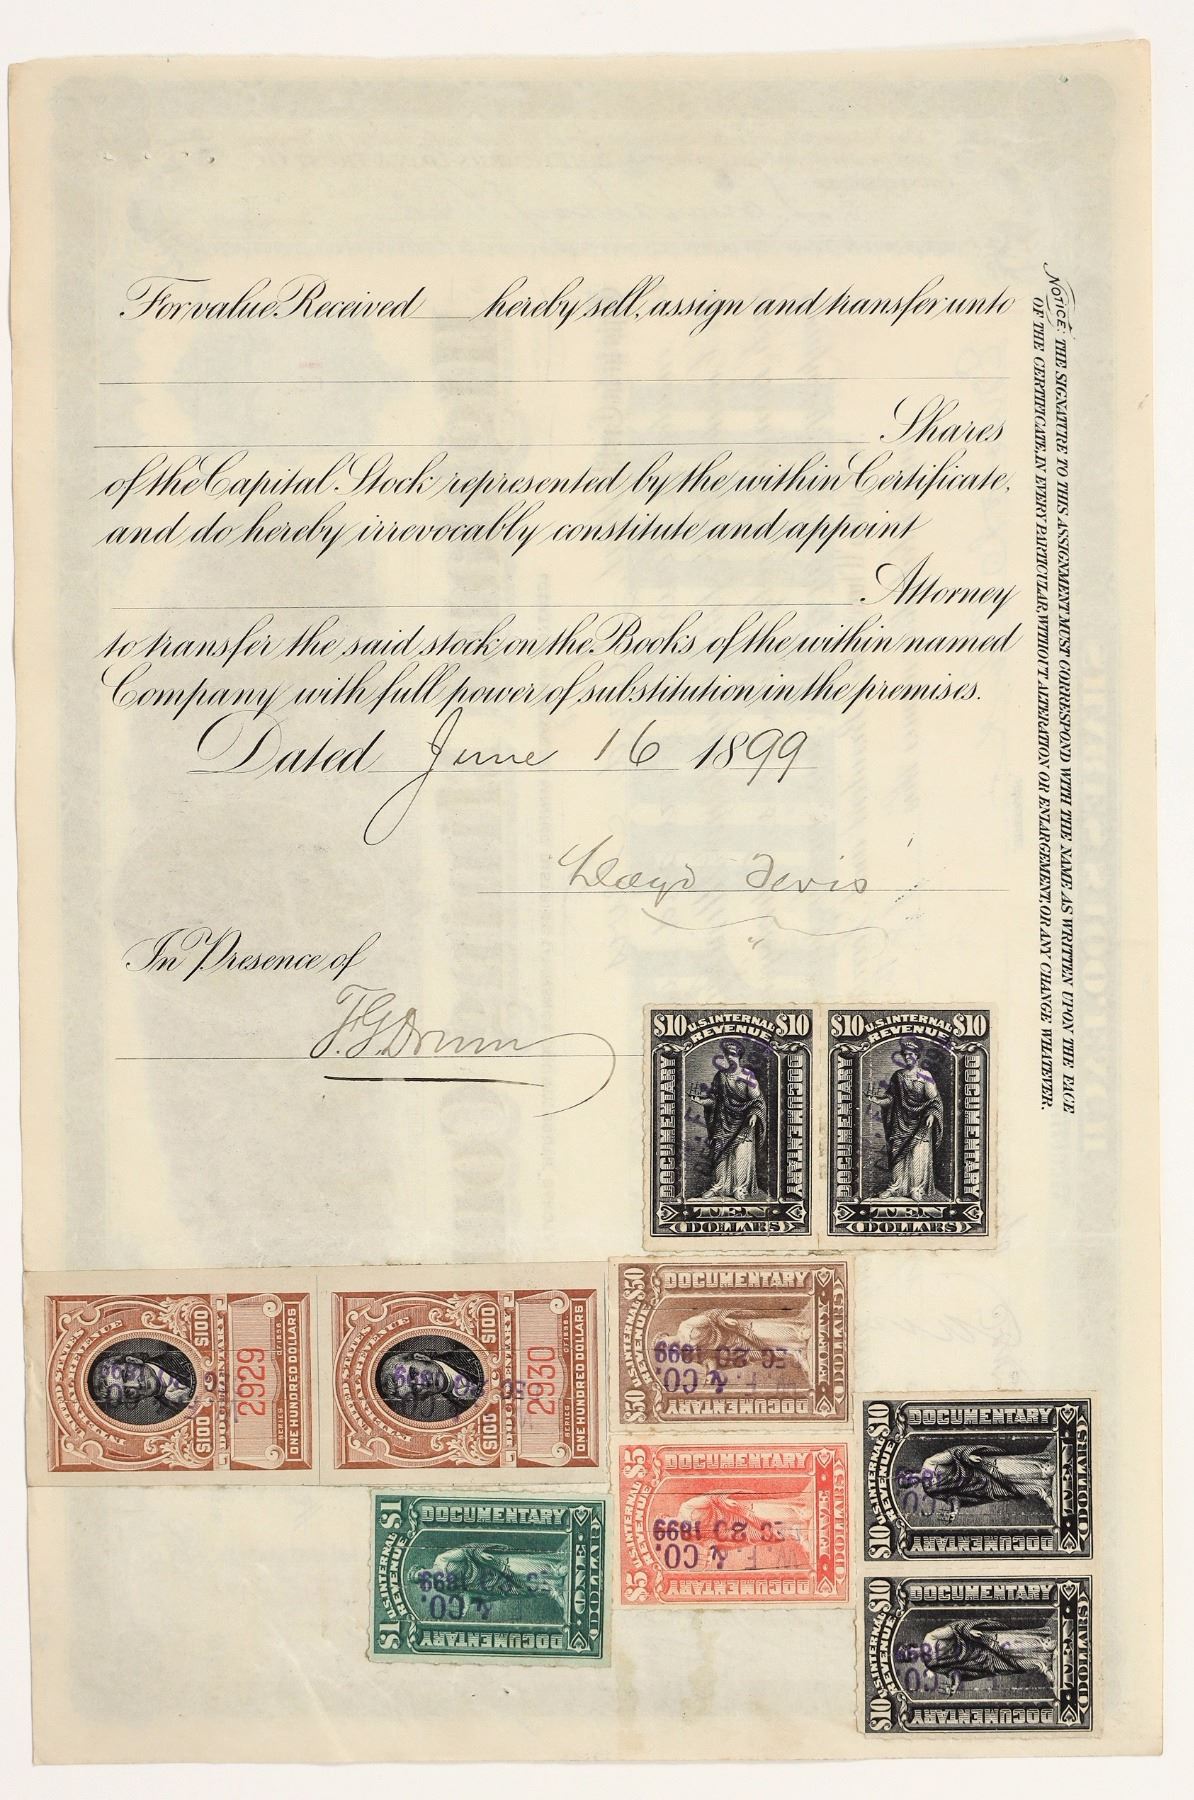 For value Received hereby sell, assign and transfer unto
Shares
of the Capital Stock represented by the within Certificate,
and do hereby irrevocably constitute and appoint
Attorney
to transfer the said stock on the Books of the within named
Company with full power of substitution in the premises.
Dated June 16 1899
Lloyd Tevis
In Presence of
F.G. Drum
NOTICE: THE SIGNATURE TO THIS ASSIGNMENT MUST CORRESPOND WITH THE NAME AS WRITTEN UPON THE FACE
OF THE CERTIFICATE, IN EVERY PARTICULAR, WITHOUT ALTERATION OR ENLARGEMENT, OR ANY CHANGE WHATEVER.
$10 U.S. INTERNAL REVENUE $10
DOCUMENTARY DOCUMENTARY
TEN DOLLARS
$10 U.S. INTERNAL REVENUE $10
DOCUMENTARY DOCUMENTARY
TEN DOLLARS
UNITED STATES
INTERNAL REVENUE
$100 $100
DOCUMENTARY
2929
SERIES OF 1898
ONE HUNDRED DOLLARS
UNITED STATES
INTERNAL REVENUE
$100 $100
DOCUMENTARY
2930
SERIES OF 1898
ONE HUNDRED DOLLARS
$50 U.S. INTERNAL REVENUE $50
DOCUMENTARY DOCUMENTARY
FIFTY DOLLARS
W. F. & CO.
DEC 20 1899
$5 U.S. INTERNAL REVENUE $5
DOCUMENTARY DOCUMENTARY
FIVE DOLLARS
W. F. & CO.
DEC 20 1899
$1 U.S. INTERNAL REVENUE $1
DOCUMENTARY DOCUMENTARY
ONE DOLLAR
& CO.
1899
$10 U.S. INTERNAL REVENUE $10
DOCUMENTARY DOCUMENTARY
TEN DOLLARS
CO.
1899
$10 U.S. INTERNAL REVENUE $10
DOCUMENTARY DOCUMENTARY
TEN DOLLARS
CO.
1899